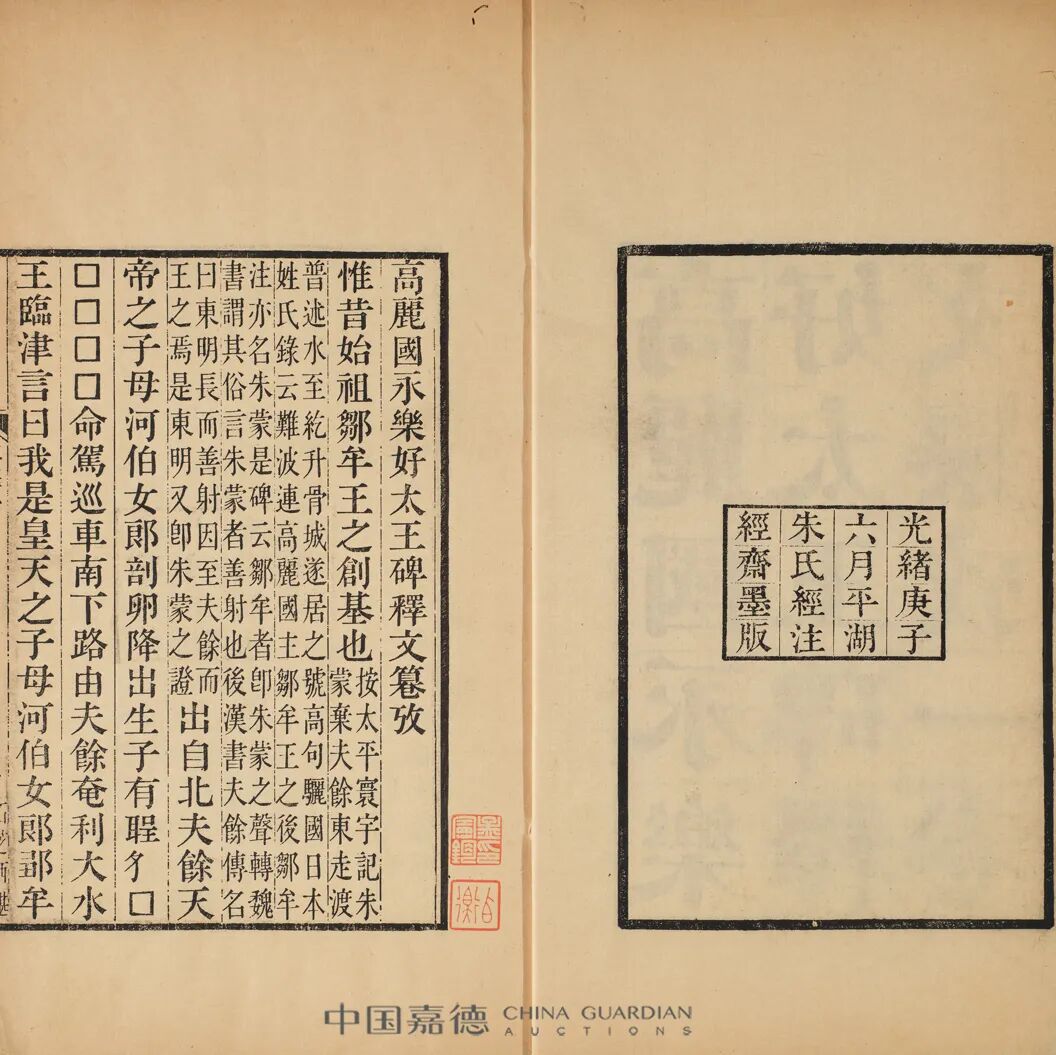 光緒庚子
六月平湖
朱氏經注
經齋墨版
高麗國永樂好太王碑釋文纂攷
惟昔始祖鄒牟王之創基也
按太平寰宇記朱
蒙棄夫餘東走渡
普述水至紇升骨城遂居之號高句驪國日本
姓氏錄云難波連高麗國主鄒牟王之後鄒牟
注亦名朱蒙是碑云鄒牟者卽朱蒙之聲轉魏
書謂其俗言朱蒙者善射也後漢書夫餘傳名
曰東明長而善射因至夫餘而
王之焉是東明又卽朱蒙之證
出自北夫餘天
帝之子母河伯女郎剖卵降出生子有□
□□□□命駕巡車南下路由夫餘奄利大水
王臨津言曰我是皇天之子母河伯女郎鄒牟
中国嘉德 CHINA GUARDIAN
AUCTIONS